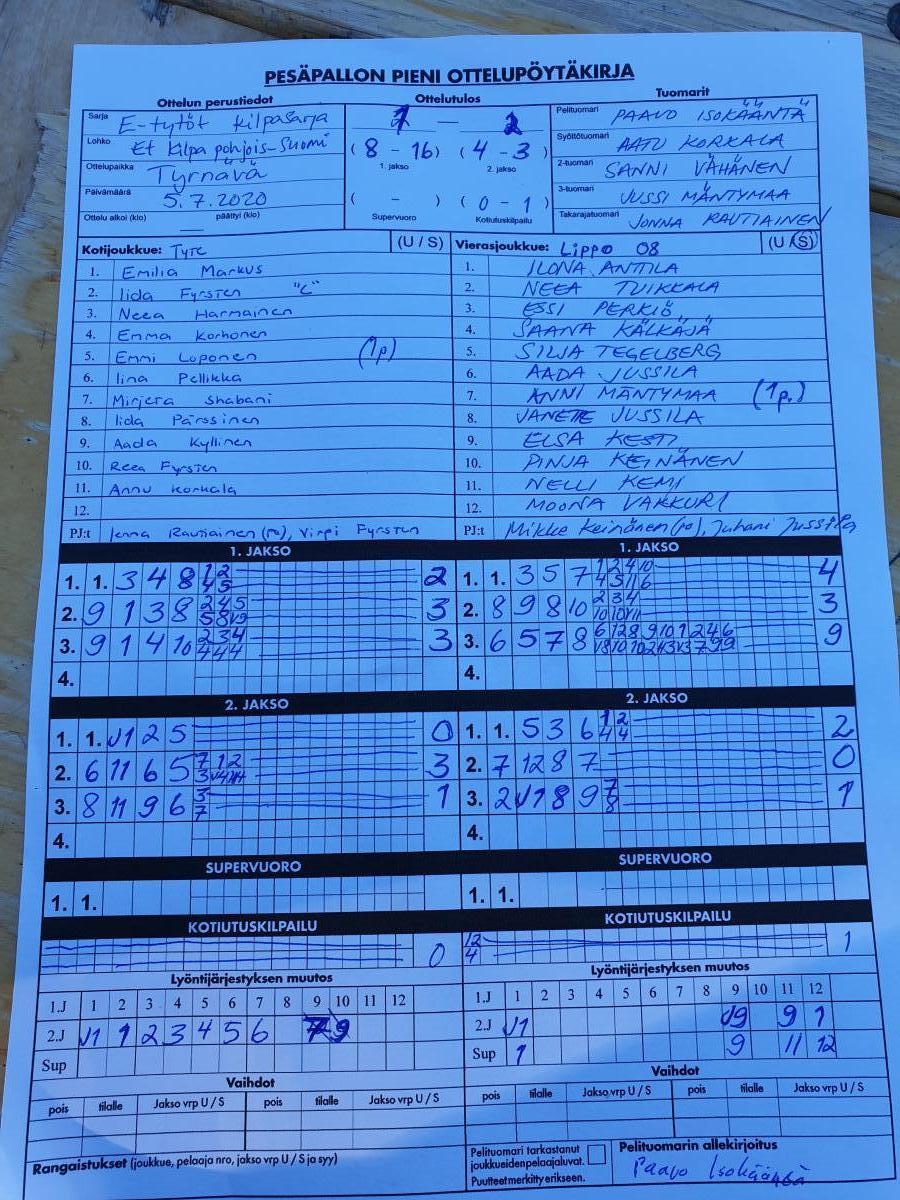 PESÄPALLON PIENI OTTELUPÖYTÄKIRJA
Ottelun perustiedot
Sarja E-tytöt kilpasarja
Lohko Et kilpa pohjois-Suomi
Ottelupaikka Tyrnävä
Päivämäärä 5.7.2020
Ottelu alkoi (klo) päättyi (klo)
Ottelutulos
—
(8 - 16) (4 - 3)
1. jakso 2. jakso
( - ) (0 - 1)
Supervuoro Kotiutuskilpailu
Tuomarit
Pelituomari PAAVO ISOKÄÄNTÄ
Syöttötuomari AATU KORKALA
2-tuomari SANNI VÄHÄNEN
3-tuomari JUSSI MÄNTYMAA
Takarajatuomari JONNA RAUTIAINEN
Kotijoukkue: Tyte (U / S)
1. Emilia Markus
2. Iida Fyrsten "C"
3. Neea Harmainen
4. Emma Korhonen
5. Emmi Loponen (1p)
6. Iina Pellikka
7. Mirjera Shabani
8. Iida Pärssinen
9. Aada Kyllinen
10. Reea Fyrsten
11. Annu Korkala
12.
PJ:t Jenna Rautiainen (po), Virpi Fyrsten
Vierasjoukkue: Lippo 08 (U / S)
1. ILONA ANTTILA
2. NEEA TUIKKALA
3. ESSI PERKIÖ
4. SAANA KÄLKÄJÄ
5. SILJA TEGELBERG
6. AADA JUSSILA
7. ANNI MÄNTYMAA (1p.)
8. JANETTE JUSSILA
9. ELSA KESTI
10. PINJA KEINÄNEN
11. NELLI KEMI
12. MOONA VAKKURI
PJ:t Mikko Keinänen (po), Juhani Jussila
1. JAKSO
1. 1. 3 4 8 2
2. 9 1 3 8 3
3. 9 1 4 10 3
4.
1. JAKSO
1. 1. 3 5 7 4
2. 8 9 8 10 3
3. 6 5 7 8 9
4.
2. JAKSO
1. 1. V1 2 5 0
2. 6 11 6 5 3
3. 8 11 9 6 3 7 1
4.
2. JAKSO
1. 1. 5 3 6 2
2. 7 12 8 7 0
3. 2 V1 8 9 7 8 1
4.
SUPERVUORO
1. 1.
SUPERVUORO
1. 1.
KOTIUTUSKILPAILU
0
KOTIUTUSKILPAILU
12 4 1
Lyöntijärjestyksen muutos
1.J 1 2 3 4 5 6 7 8 9 10 11 12
2.J V1 1 2 3 4 5 6 9
Sup
Lyöntijärjestyksen muutos
1.J 1 2 3 4 5 6 7 8 9 10 11 12
2.J V1 V9 9 1
Sup 1 9 11 12
Vaihdot
pois tilalle Jakso vrp U / S pois tilalle Jakso vrp U / S
Vaihdot
pois tilalle Jakso vrp U / S pois tilalle Jakso vrp U / S
Rangaistukset (joukkue, pelaaja nro, jakso vrp U / S ja syy)
Pelituomari tarkastanut
joukkueidenpelaajaluvat.
Puutteetmerkitty erikseen.
Pelituomarin allekirjoitus
Paavo Isokääntä